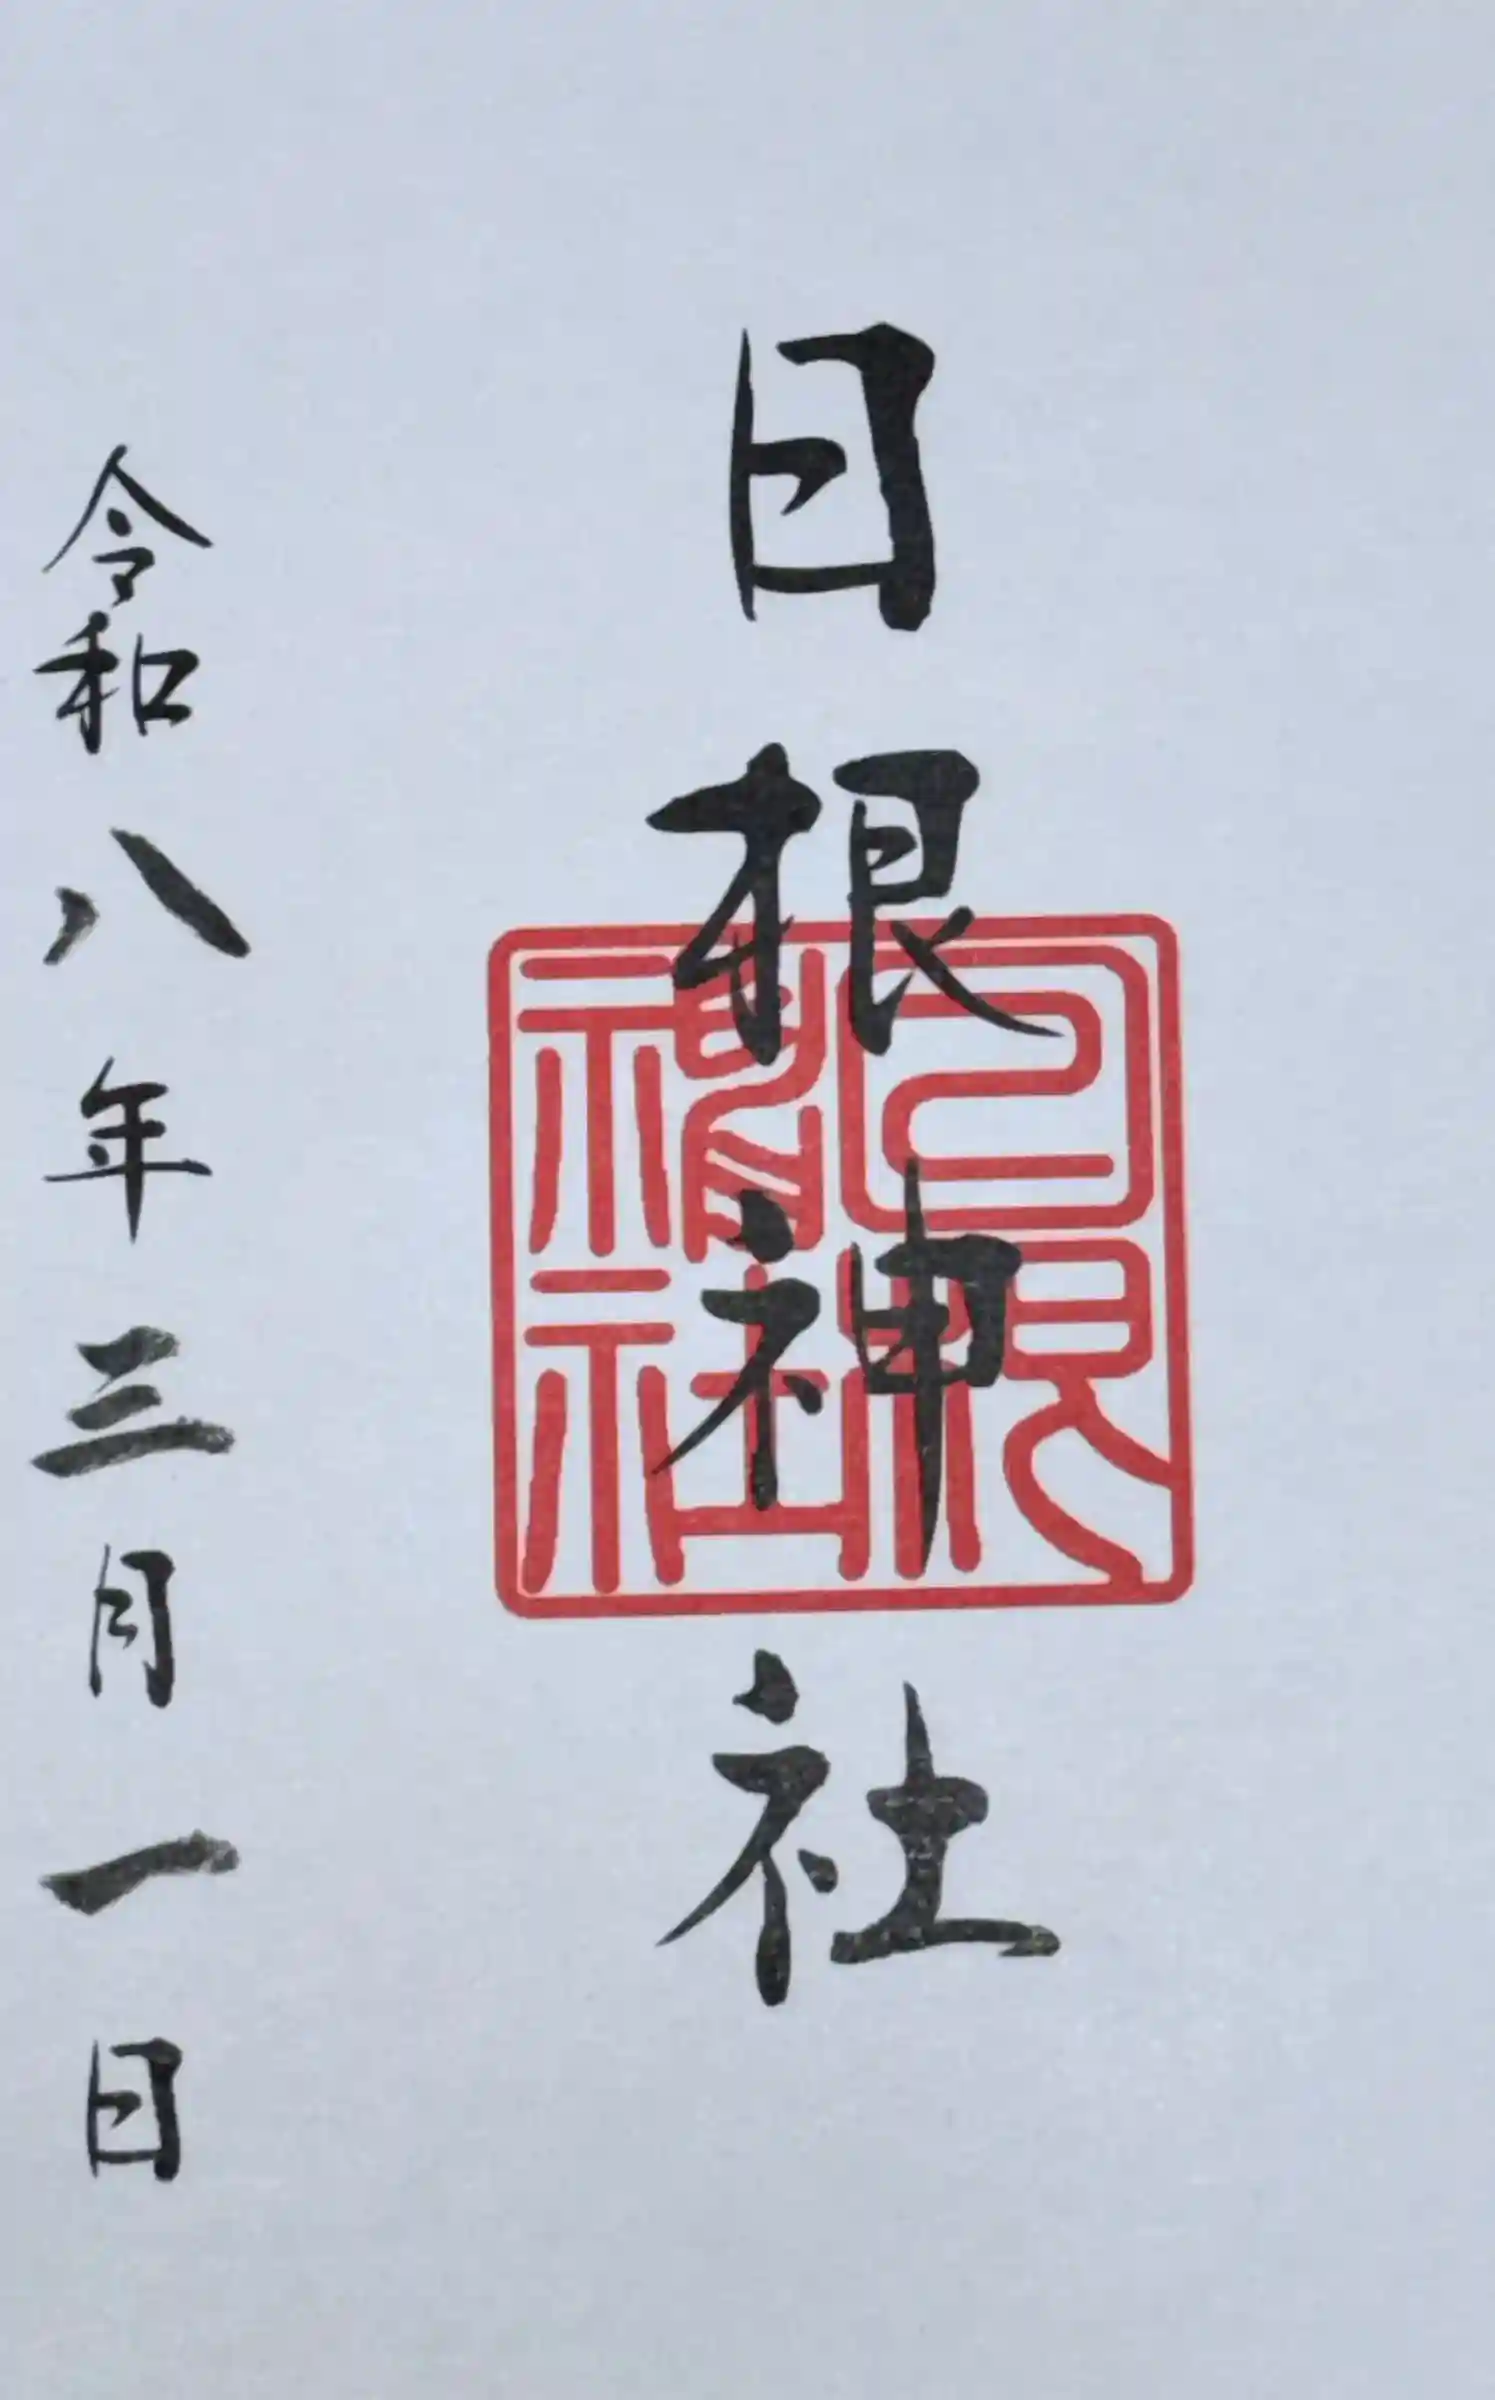 日根神社
日根神社
令和八年三月一日